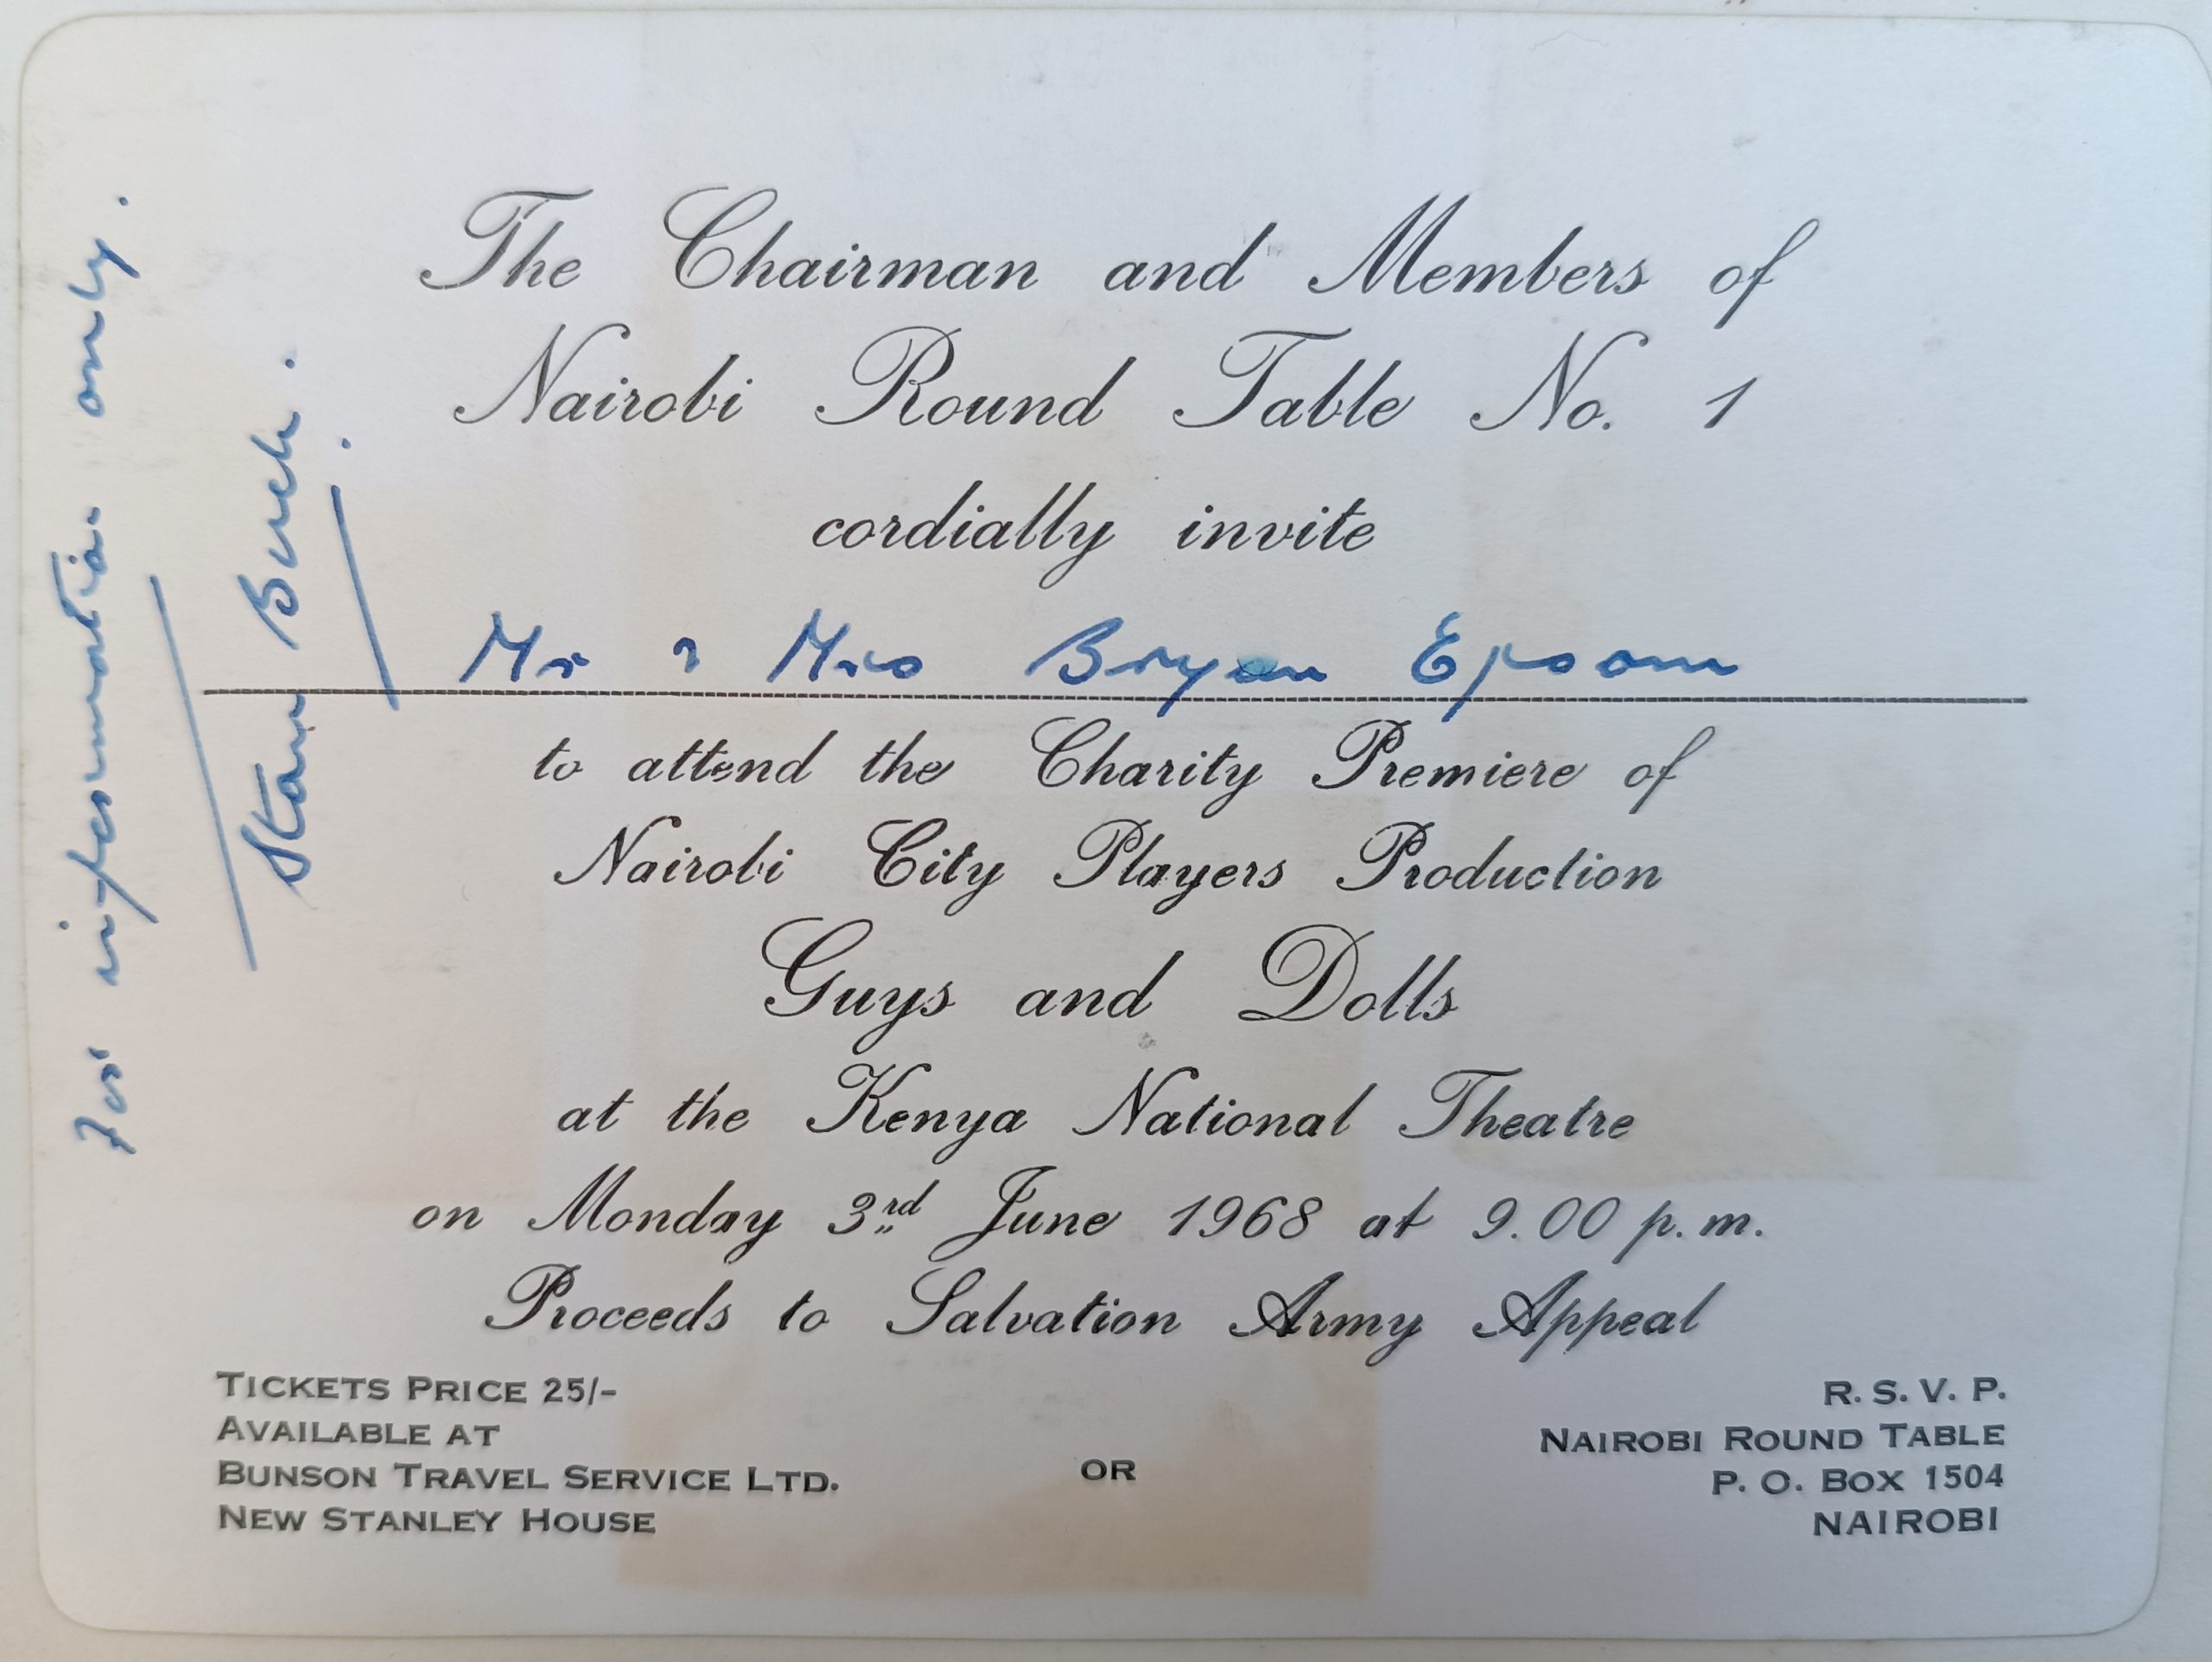 The Chairman and Members of
Nairobi Round Table No. 1
cordially invite
Mr & Mrs Bryan Epsom
to attend the Charity Premiere of
Nairobi City Players Production
Guys and Dolls
at the Kenya National Theatre
on Monday 3rd June 1968 at 9.00 p.m.
Proceeds to Salvation Army Appeal
TICKETS PRICE 25/-
AVAILABLE AT
BUNSON TRAVEL SERVICE LTD.
NEW STANLEY HOUSE
OR
R. S. V. P.
NAIROBI ROUND TABLE
P. O. BOX 1504
NAIROBI
For information only.
Stan